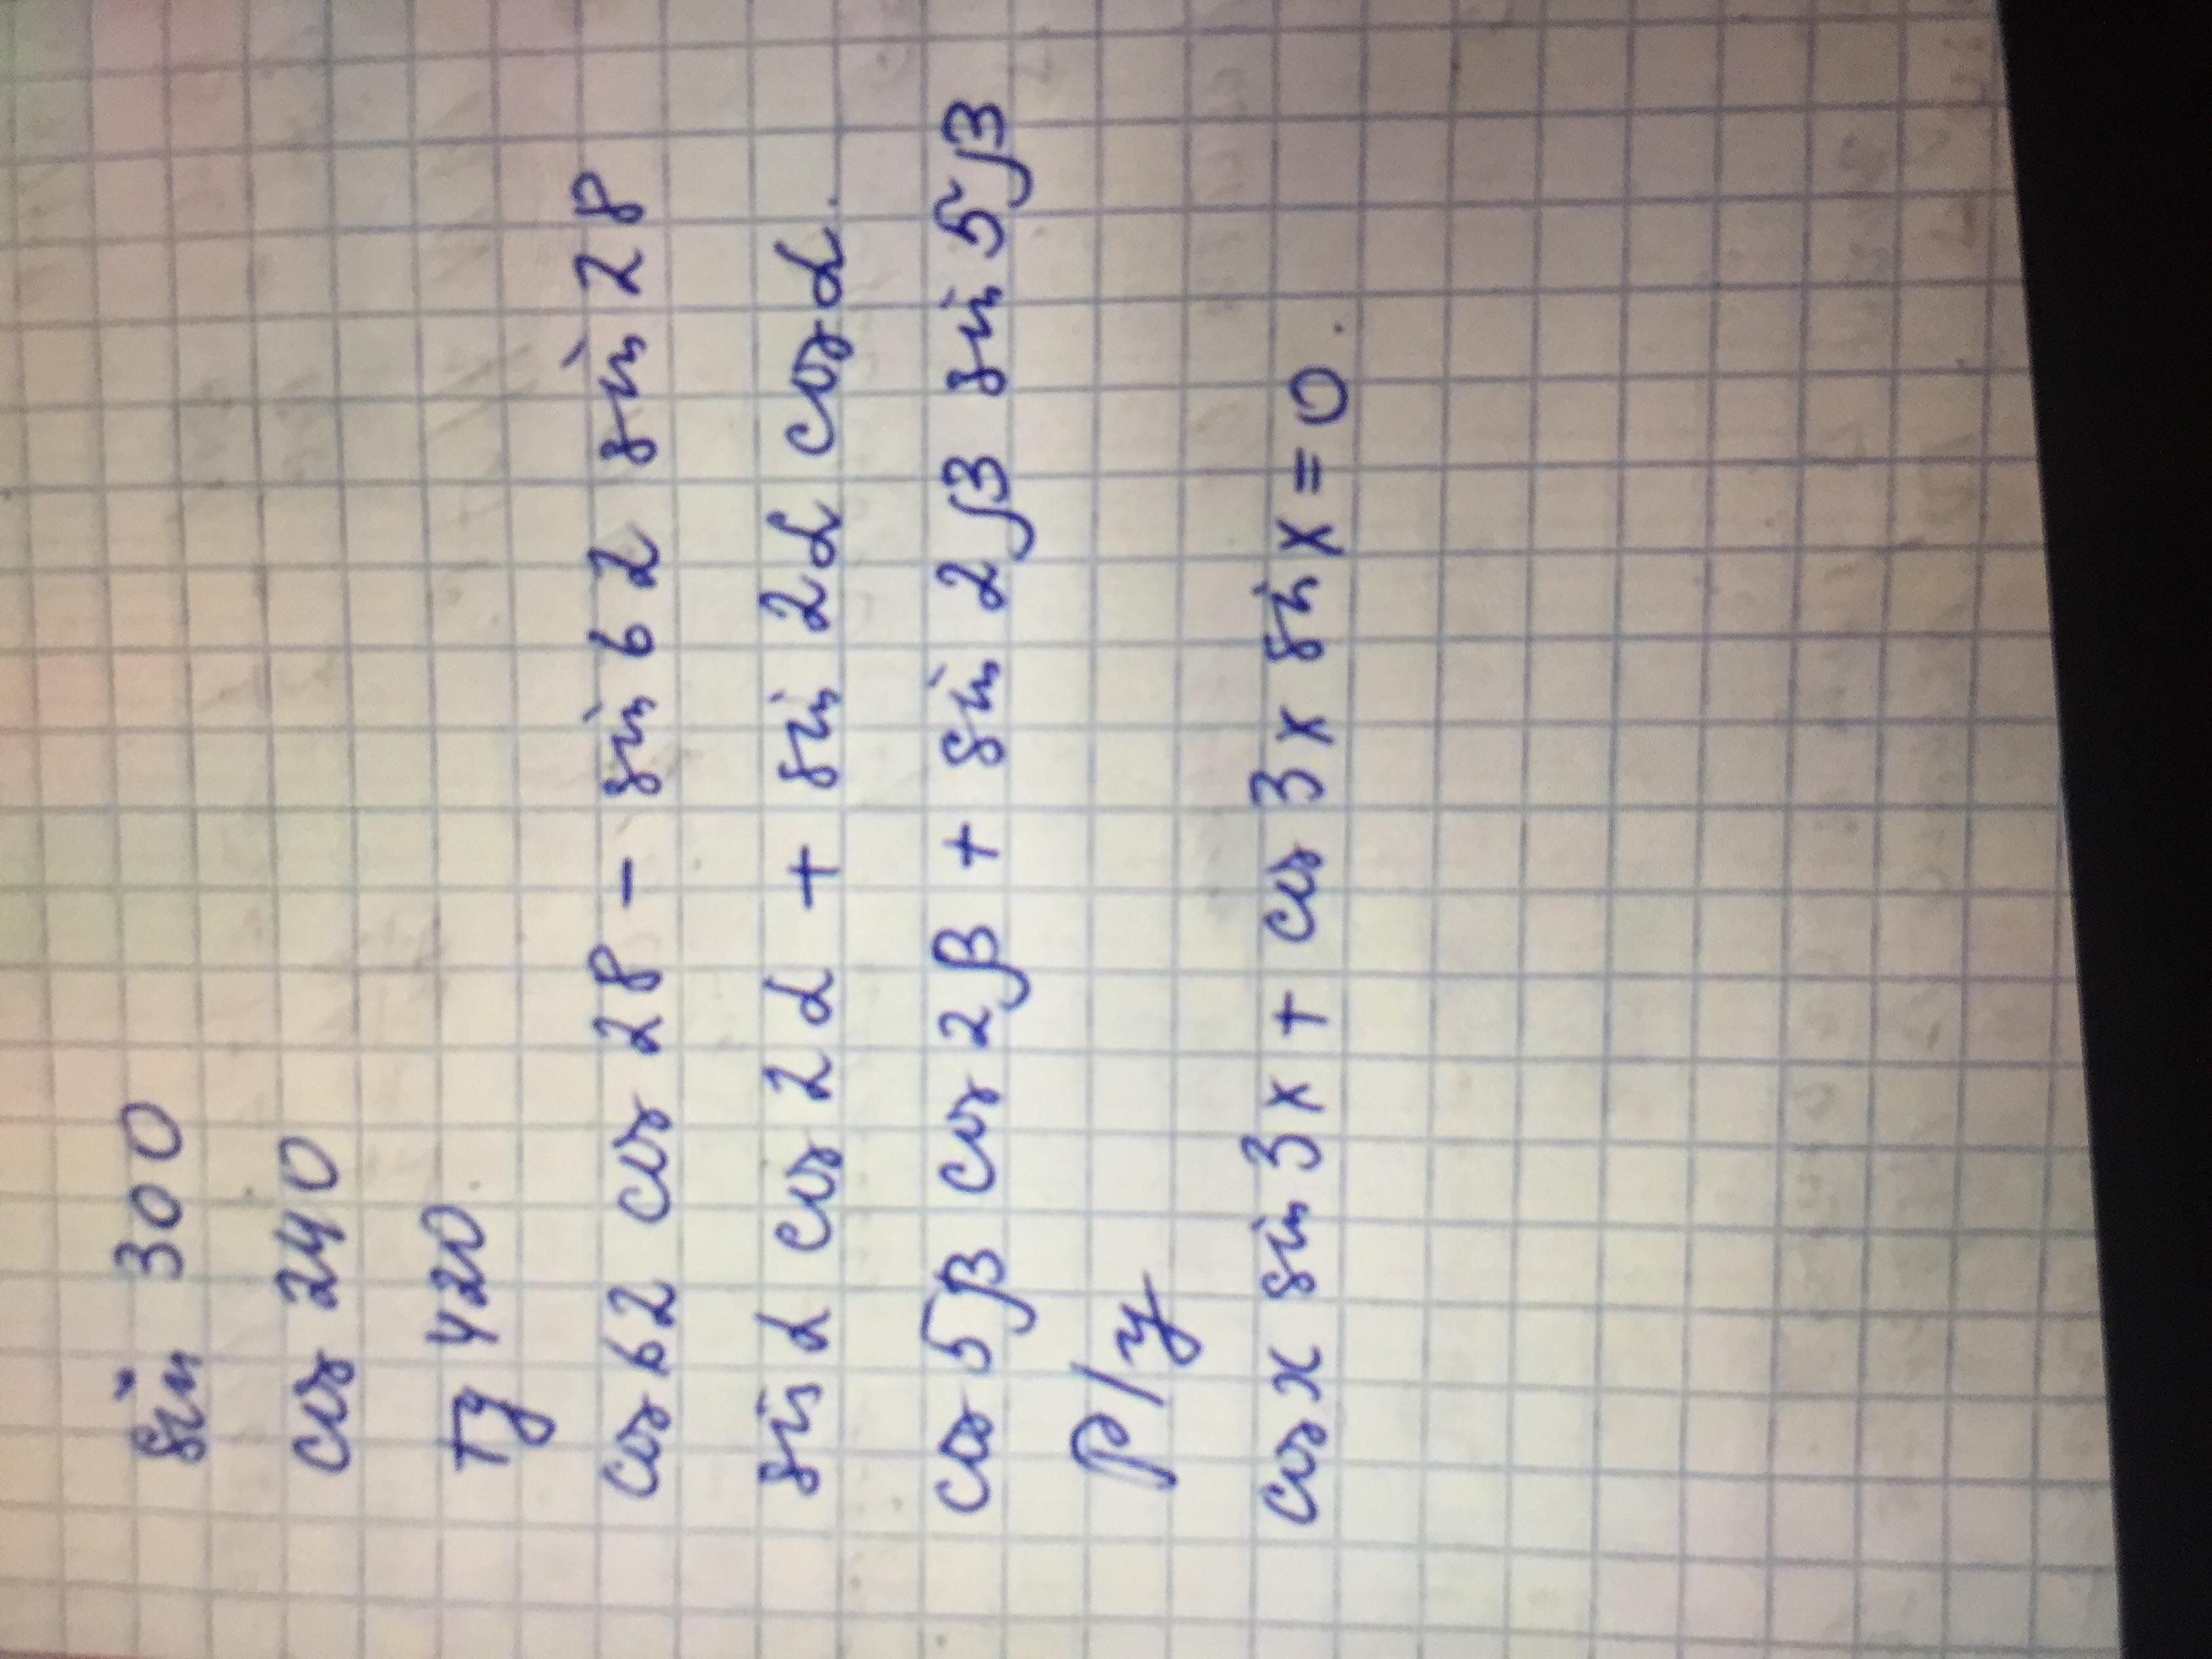 sin 300
cos 240
tg 420
cos 62 cos 28 - sin 62 sin 28
sin α cos 2α + sin 2α cos α.
cos 5β cos 2β + sin 2β sin 5β
Р/у
cos x sin 3x + cos 3x sin x = 0.